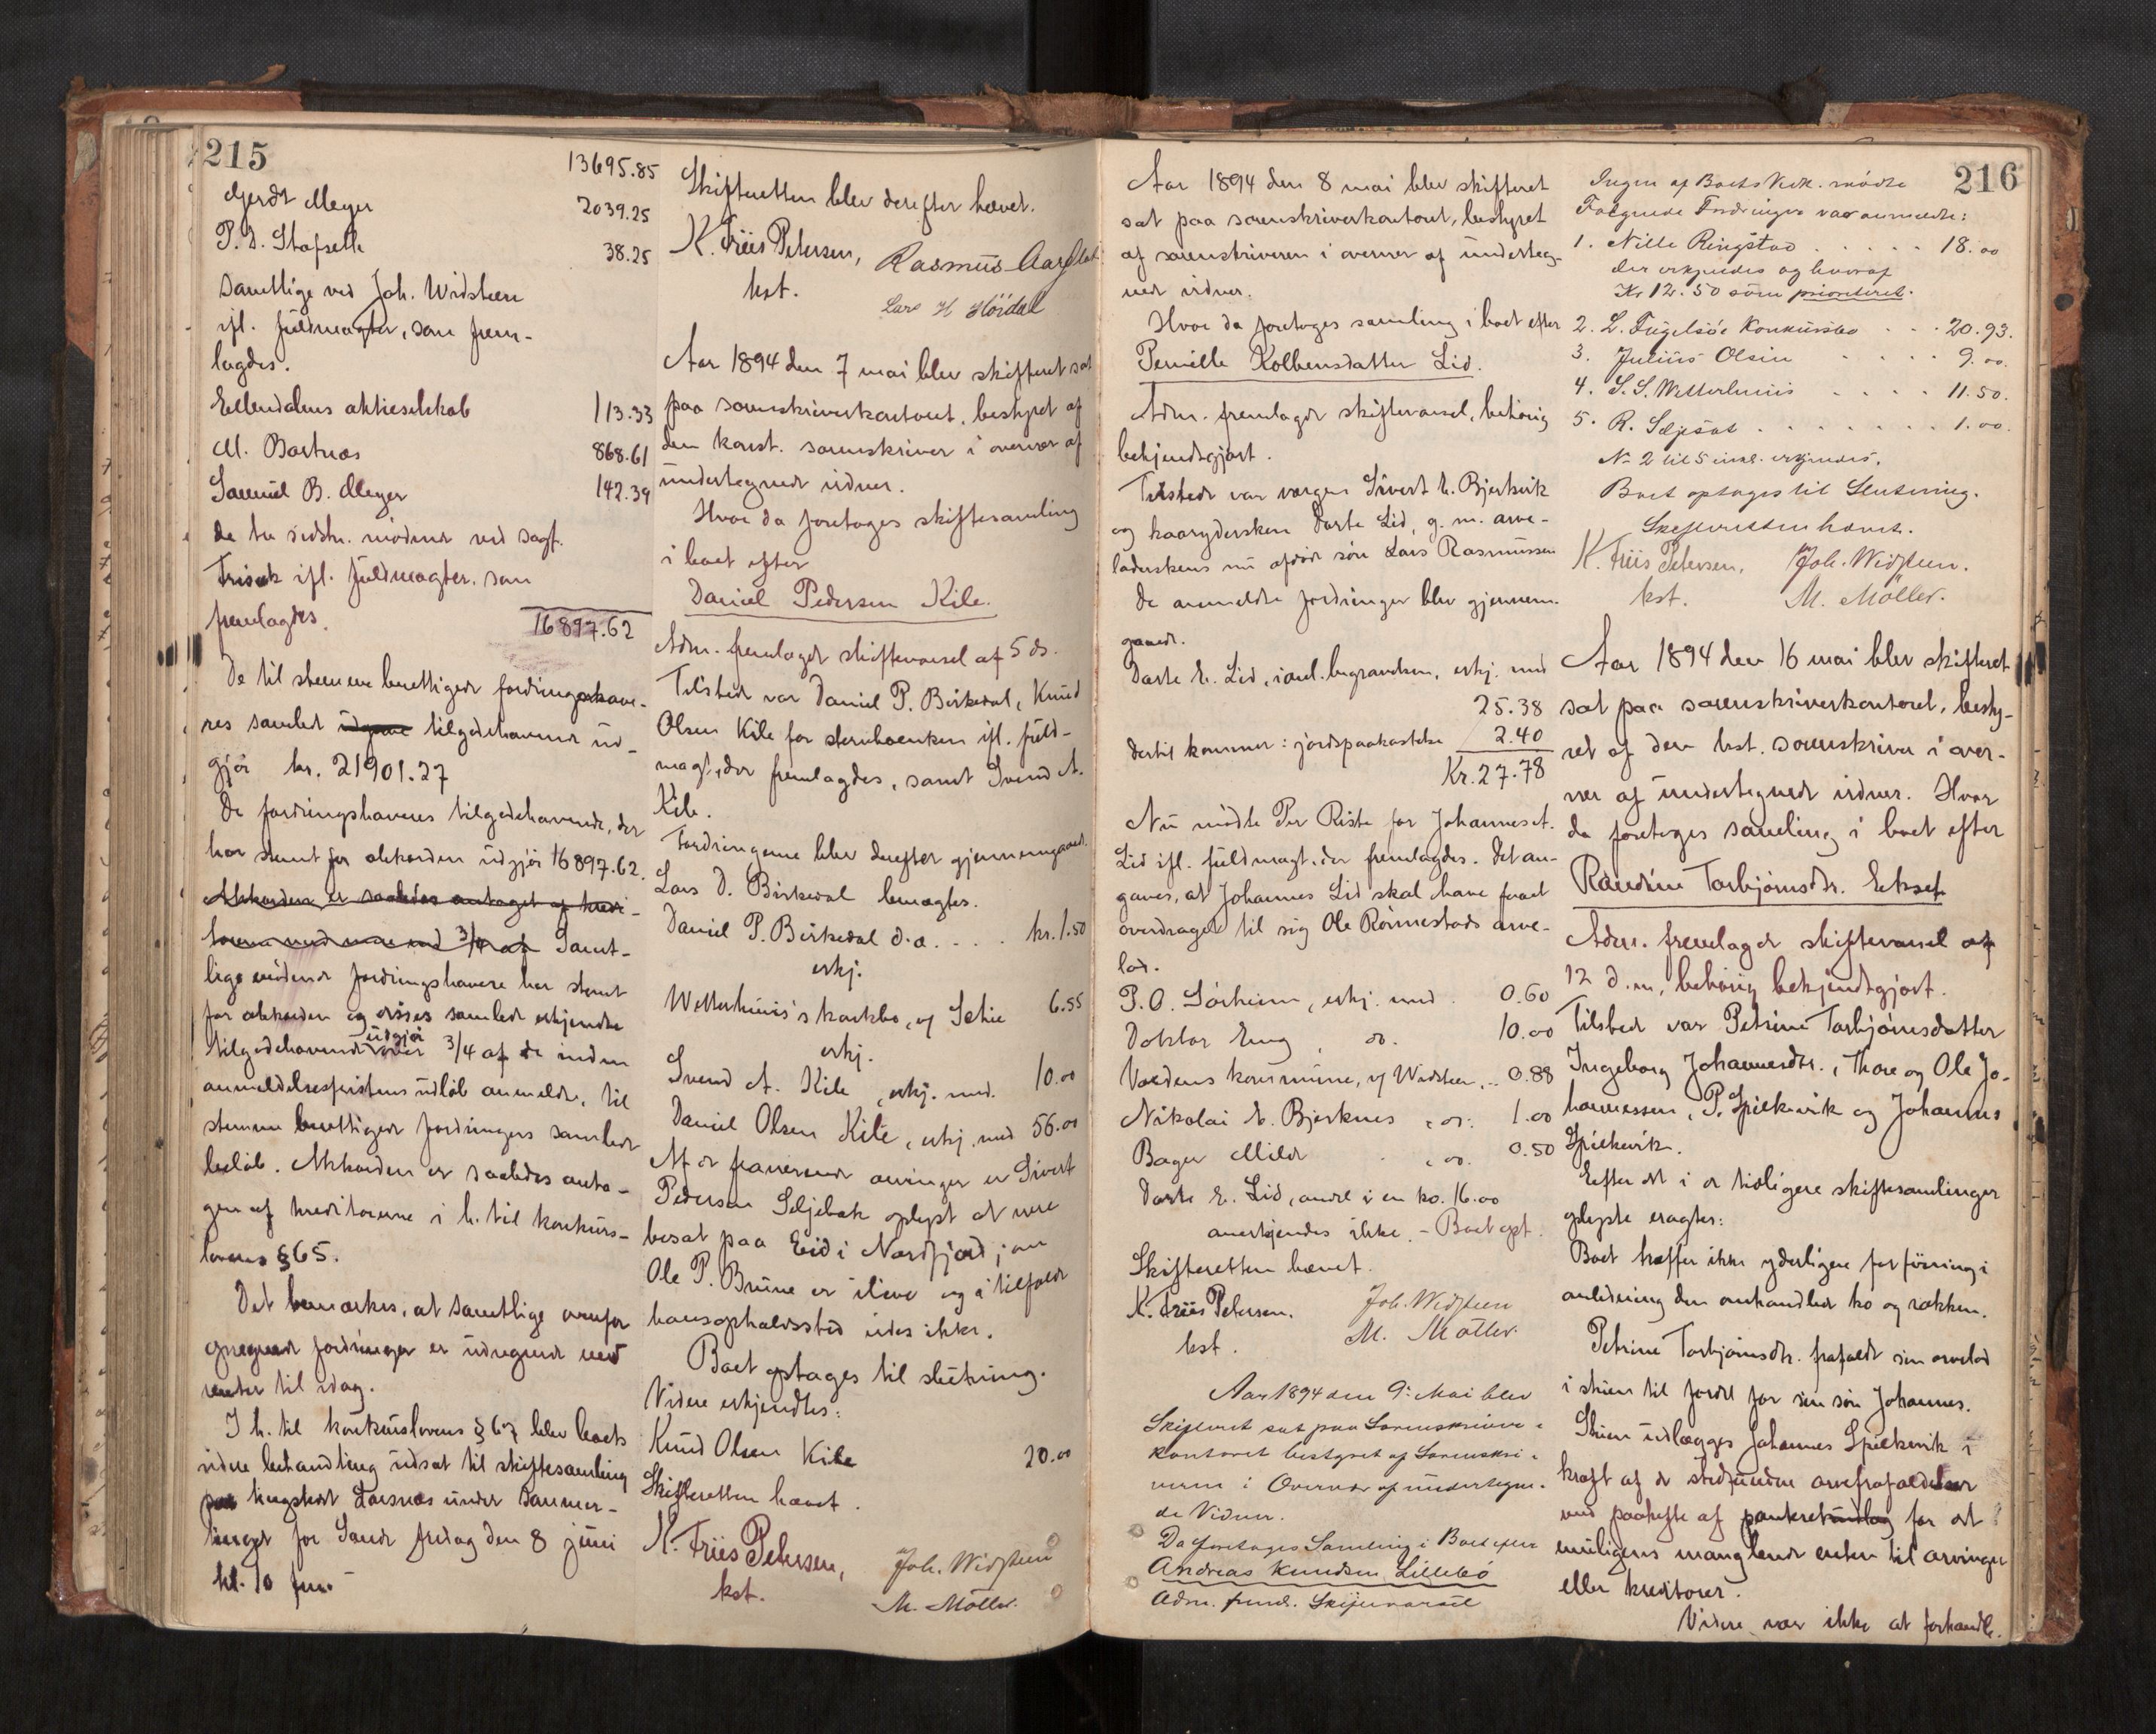 215
13695.85
Gerdt Meyer 2039.25
P. D. Stafseth 38.25
samtlige ved Joh. Widsteen
ifl. fuldmagter, som frem-
lagdes.
Ellendalens aktieselskab 113.33
M. Bartnes 868.61
Samuel B. Meyer 142.39
de to sidstn. mødende ved sagf.
Trisak ifl. fuldmagter, som
fremlagdes.
16897.62
De til stemme berettigede fordringshave-
res samlede udgave tilgodehavende ud-
gjør kr. 21901.27
De fordringshaveres tilgodehavende, der
har stemt for akkorden udgjør 16897.62.
Akkorden er saaledes antaget af kredi-
torerne med mere end 3/4 af Samt-
lige mødende fordringshavere har stemt
for akkorden og disses samlede erkjendte
tilgodehavende udgjør over 3/4 af de inden
anmeldelsesfristens udløb anmeldte, til
stemme berettigede fordringers samlede
beløb. Akkorden er saaledes anta-
gen af kreditorerne i h. til konkurs-
lovens § 65.
Det bemærkes, at samtlige ovenfor
opregnede fordringer er udregnede med
renter til idag.
I h. til konkurslovens § 67 blev boets
videre behandling udsat til skiftesamling
paa tingstedet Larsnes under sommer-
tinget for Sande fredag den 8 juni
kl. 10 fm.
Skifteretten blev derefter hævet.
K. Friis Petersen,
kst.
Rasmus Aarflot
Lars H Hördal
Aar 1894 den 7 mai blev skifteret sat
paa sorenskriverkontoret, bestyret af
den konst. sorenskriver i overvær af
undertegnede vidner.
Hvor da foretoges skiftesamling
i boet efter
Daniel Pedersen Kile.
Adm. fremlagde skiftevarsel af 5 ds.
Tilstede var Daniel P. Birkedal, Knud
Olsen Kile for sterboenken ifl. fuld-
magt, der fremlagdes, samt Svend A.
Kile.
Fordringerne blev derefter gjennemgaaet.
Lars D. Birkedal benægtes.
Daniel P. Birkedal d.a. . . . kr. 1.50
erkj.
Wetterhuus's konkbo, v/ Sætre 6.55
erkj.
Svend A. Kile, erkj. med. 10.00
Daniel Olsen Kile, erkj. med 56.00
Af de fraværende arvinger er Sivert
Pedersen Seljebak oplyst at være
bosat paa Eid i Nordfjord; om
Ole P. Brune er ilive og i tilfælde
hans opholdssted vides ikke.
Boet optages til slutning.
Videre erkjendtes:
Knud Olsen Kile 20.00
Skifteretten hævet.
K. Friis Petersen,
kst.
Joh. Widsteen
M. Möller.
216
Aar 1894 den 8 mai blev skifteret
sat paa sorenskriverkontoret, bestyret
af sorenskriveren i overvær af underteg-
nede vidner.
Hvor da foretoges samling i boet efter
Pernille Kolbensdatter Lid.
Adm. fremlagde skiftevarsel, behørig
bekjendtgjort.
Tilstede var værgen Sivert E. Bjerkvik
og kaarydersken Dorte Lid, g. m. arve-
laderskens nu afdøde søn Lars Rasmussen
De anmeldte fordringer blev gjennem-
gaaede.
Dorte E. Lid, i anl. begravelsen, erkj. med
25.38
dertil kommer: jordspaakastelse 2.40
Kr. 27.78
Nu mødte Per Riste for Johannes A.
Lid ifl. fuldmagt, der fremlagdes. Det an-
gaves, at Johannes Lid skal have faaet
overdraget til sig Ole Rönnestads arve-
lod.
P. O. Sørheim, erkj. med 0.60
Doktor Eng, do. 10.00
Voldens kommune, v/ Widsteen, " 0.88
Nikolai E. Bjerknes, do. 1.00
Bager Milde, do. 0.50
Dorte E. Lid, andel i en ko. 16.00
anerkjendes ikke. - Boet opt.
Skifteretten hævet.
K. Friis Petersen.
kst.
Joh. Widsteen
M. Möller.
Aar 1894 den 9de Mai blev
Skifteret sat paa Sorenskriver-
kontoret bestyret af Sorenskri-
veren i Overvær af undertegne-
de Vidner.
Da foretoges Samling i Boet efter
Andreas Knudsen Lillebö
Adm. freml. Skiftevarsel
Ingen af Boets Vedk. mödte
Fölgende Fordringer var anmeldte:
1. Nille Ringstad . . . . . 18.00
der erkjendes og hvoraf
Kr 12.50 som prioriteret.
2. L. Fugelsöe Konkursbo . . . 20.93.
3. Julius Olsen . . . . 9.00.
4. S. S. Wetterhuus . . . . 11.50.
5. R. Seljeset . . . . . . 1.00.
No 2 til 5 inkl. erkjendes.
Boet optages til Slutning.
Skifteretten hævet.
K. Friis Petersen.
kst.
Joh. Widsteen.
M. Möller.
Aar 1894 den 16 mai blev skifteret
sat paa sorenskriverkontoret, besty-
ret af den kst. sorenskriver i over-
vær af undertegnede vidner. Hvor
da foretoges samling i boet efter
Randine Torbjørnsdtr. Ekset
Adm. fremlagde skiftevarsel af
12 d.m., behørig bekjendtgjort.
Tilstede var Petrine Torbjørnsdatter
Ingeborg Johannesdtr., Thore og Ole Jo-
hannessen, P. Spilkevik og Johannes
Spilkevik.
Efter det i de tidligere skiftesamlinger
oplyste eragtes:
Boet træffer ikke yderligere forføining i
anledning den omhandlede ko og rokken.
Petrine Torbjørnsdtr. frafaldt sin arvelod
i skien til fordel for sin søn Johannes.
Skien udlægges Johannes Spilkevik i
kraft af de stedfundne arvefrafaldelser
med paahefte af panteret udlæg for det
muligens manglende enten til arvinger
eller kreditorer.
Videre var ikke at forhandle.